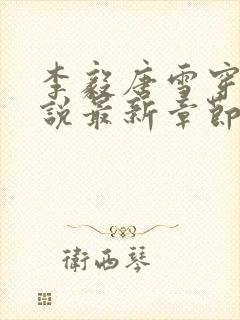 李毅唐雪穿
說最新章節
衛西琴